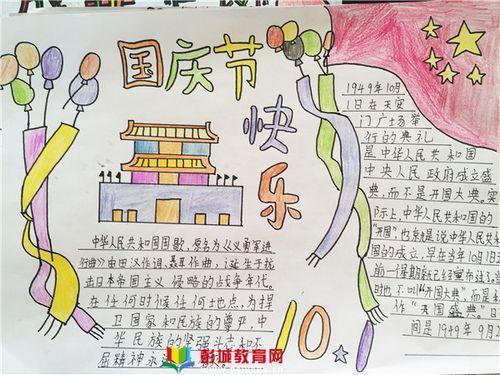 国庆节
快乐
中华人民共和国国歌,原名为《义勇军进
行曲》由田汉作词、聂耳作曲,诞生于抗
击日本帝国主义 侵略的战争年代。
在任何时候任何地点,为捍
卫国家和民族的尊严,中
华民族的坚强斗志和不
屈精神永
10.1
1949年10月
1日在天安
门广场举
行的典礼
是中华人民共和国
中央人民政府成立盛
典,而不是开国大典。实
际上,中华人民共和国的
"开国"也就是说中华人民共
国的成立,早在当年10月1日
前一个星期就已经宣布过了。当
时也不叫"开国大典",而是
作"开国盛典"日
间是1949年9月2
彭城教育网